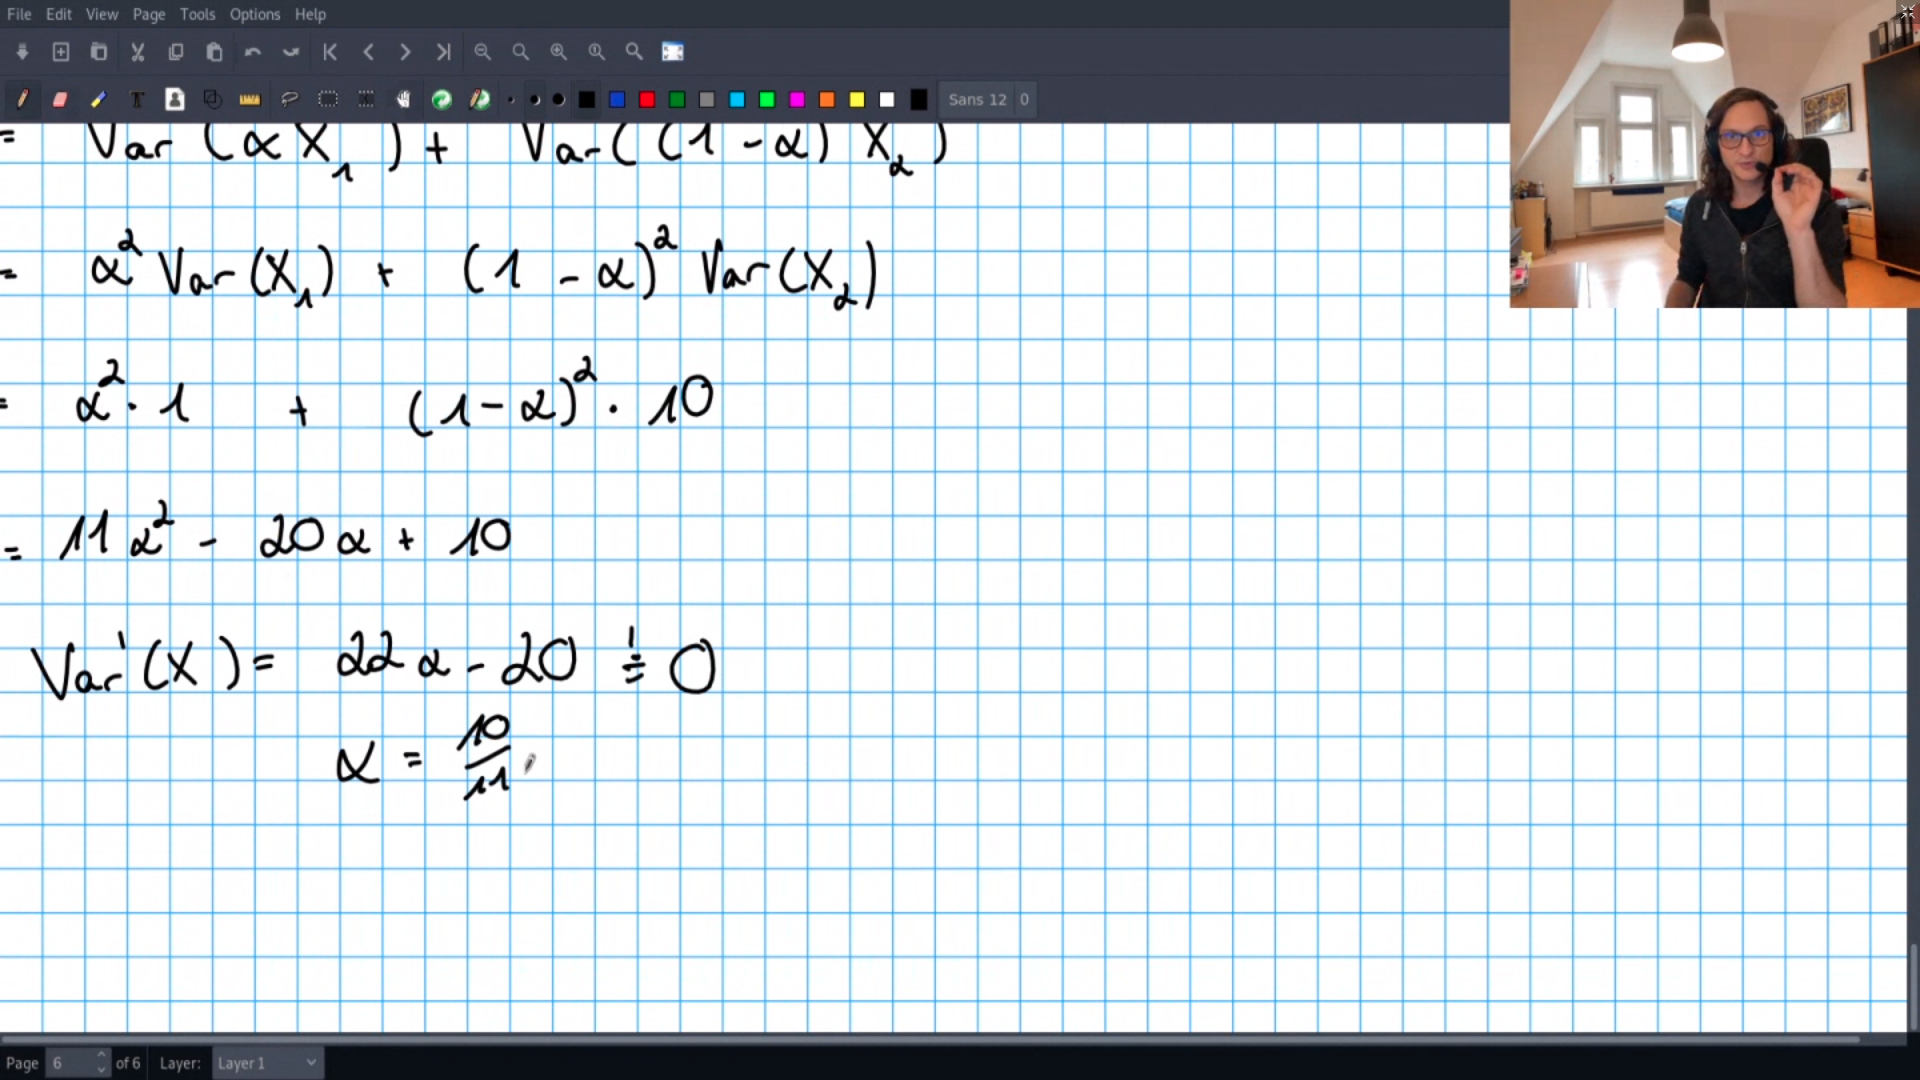 File Edit View Page Tools Options Help
Sans 12 0
= Var (αX₁) + Var((1-α) X₂)
= α² Var(X₁) + (1 - α)² Var(X₂)
= α² · 1 + (1-α)² · 10
= 11α² - 20α + 10
Var'(X) = 22α - 20 =! 0
α = 10/11
Page 6 of 6 Layer: Layer 1